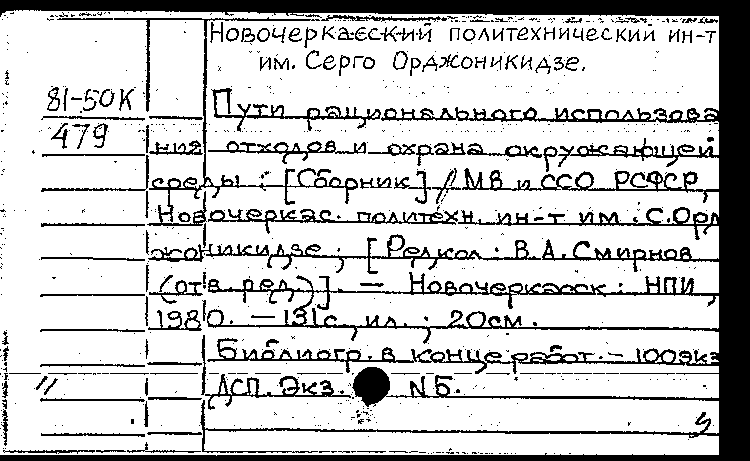 Новочеркасский политехнический ин-т
им. Серго Орджоникидзе.
81-50К
479
Пути рационального использова
ния отходов и охрана окружающей
среды : [Сборник] / МВ и ССО РСФСР,
Новочеркас. политехн. ин-т им. С. Орд
жоникидзе ; [Редкол.: В.А. Смирнов
(отв. ред.)]. — Новочеркасск : НПИ,
1980. — 131с., ил. ; 20см.
Библиогр. в конце работ. — 100 экз
ДСП. Экз. № 5.